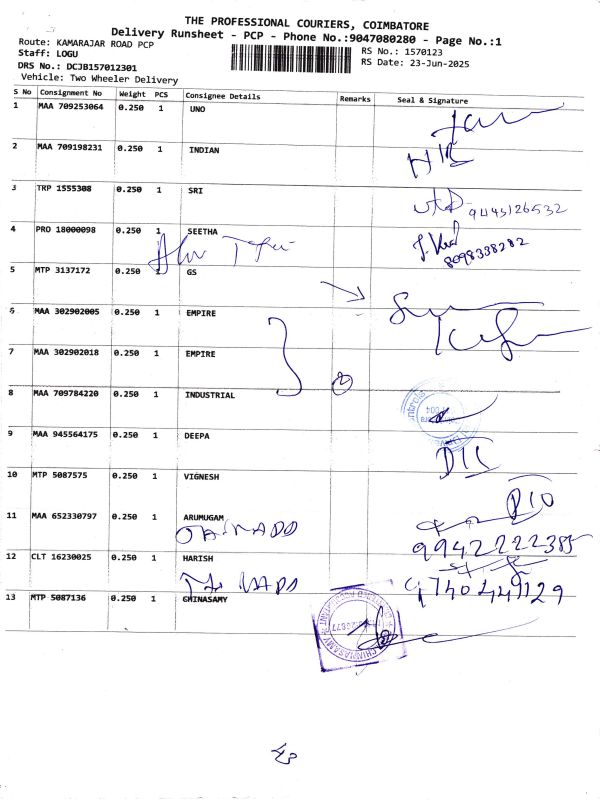 THE PROFESSIONAL COURIERS, COIMBATORE
Delivery Runsheet - PCP - Phone No.:9047080280 - Page No.:1
Route: KAMARAJAR ROAD PCP
RS No.: 1570123
Staff: LOGU
RS Date: 23-Jun-2025
DRS No.: DCJB157012301
Vehicle: Two Wheeler Delivery
S No Consignment No Weight PCS Consignee Details Remarks Seal & Signature
1 MAA 709253064 0.250 1 UNO
2 MAA 709198231 0.250 1 INDIAN
3 TRP 1555308 0.250 1 SRI
9443126532
4 PRO 18000098 0.250 1 SEETHA
8098338282
5 MTP 3137172 0.250 1 GS
6 MAA 302902005 0.250 1 EMPIRE
7 MAA 302902018 0.250 1 EMPIRE
2
8 MAA 709784220 0.250 1 INDUSTRIAL
9 MAA 945564175 0.250 1 DEEPA
10 MTP 5087575 0.250 1 VIGNESH
11 MAA 652330797 0.250 1 ARUMUGAM
9942222385
12 CLT 16230025 0.250 1 HARISH
9740449129
13 MTP 5087136 0.250 1 CHINASAMY
CHINNASAMY